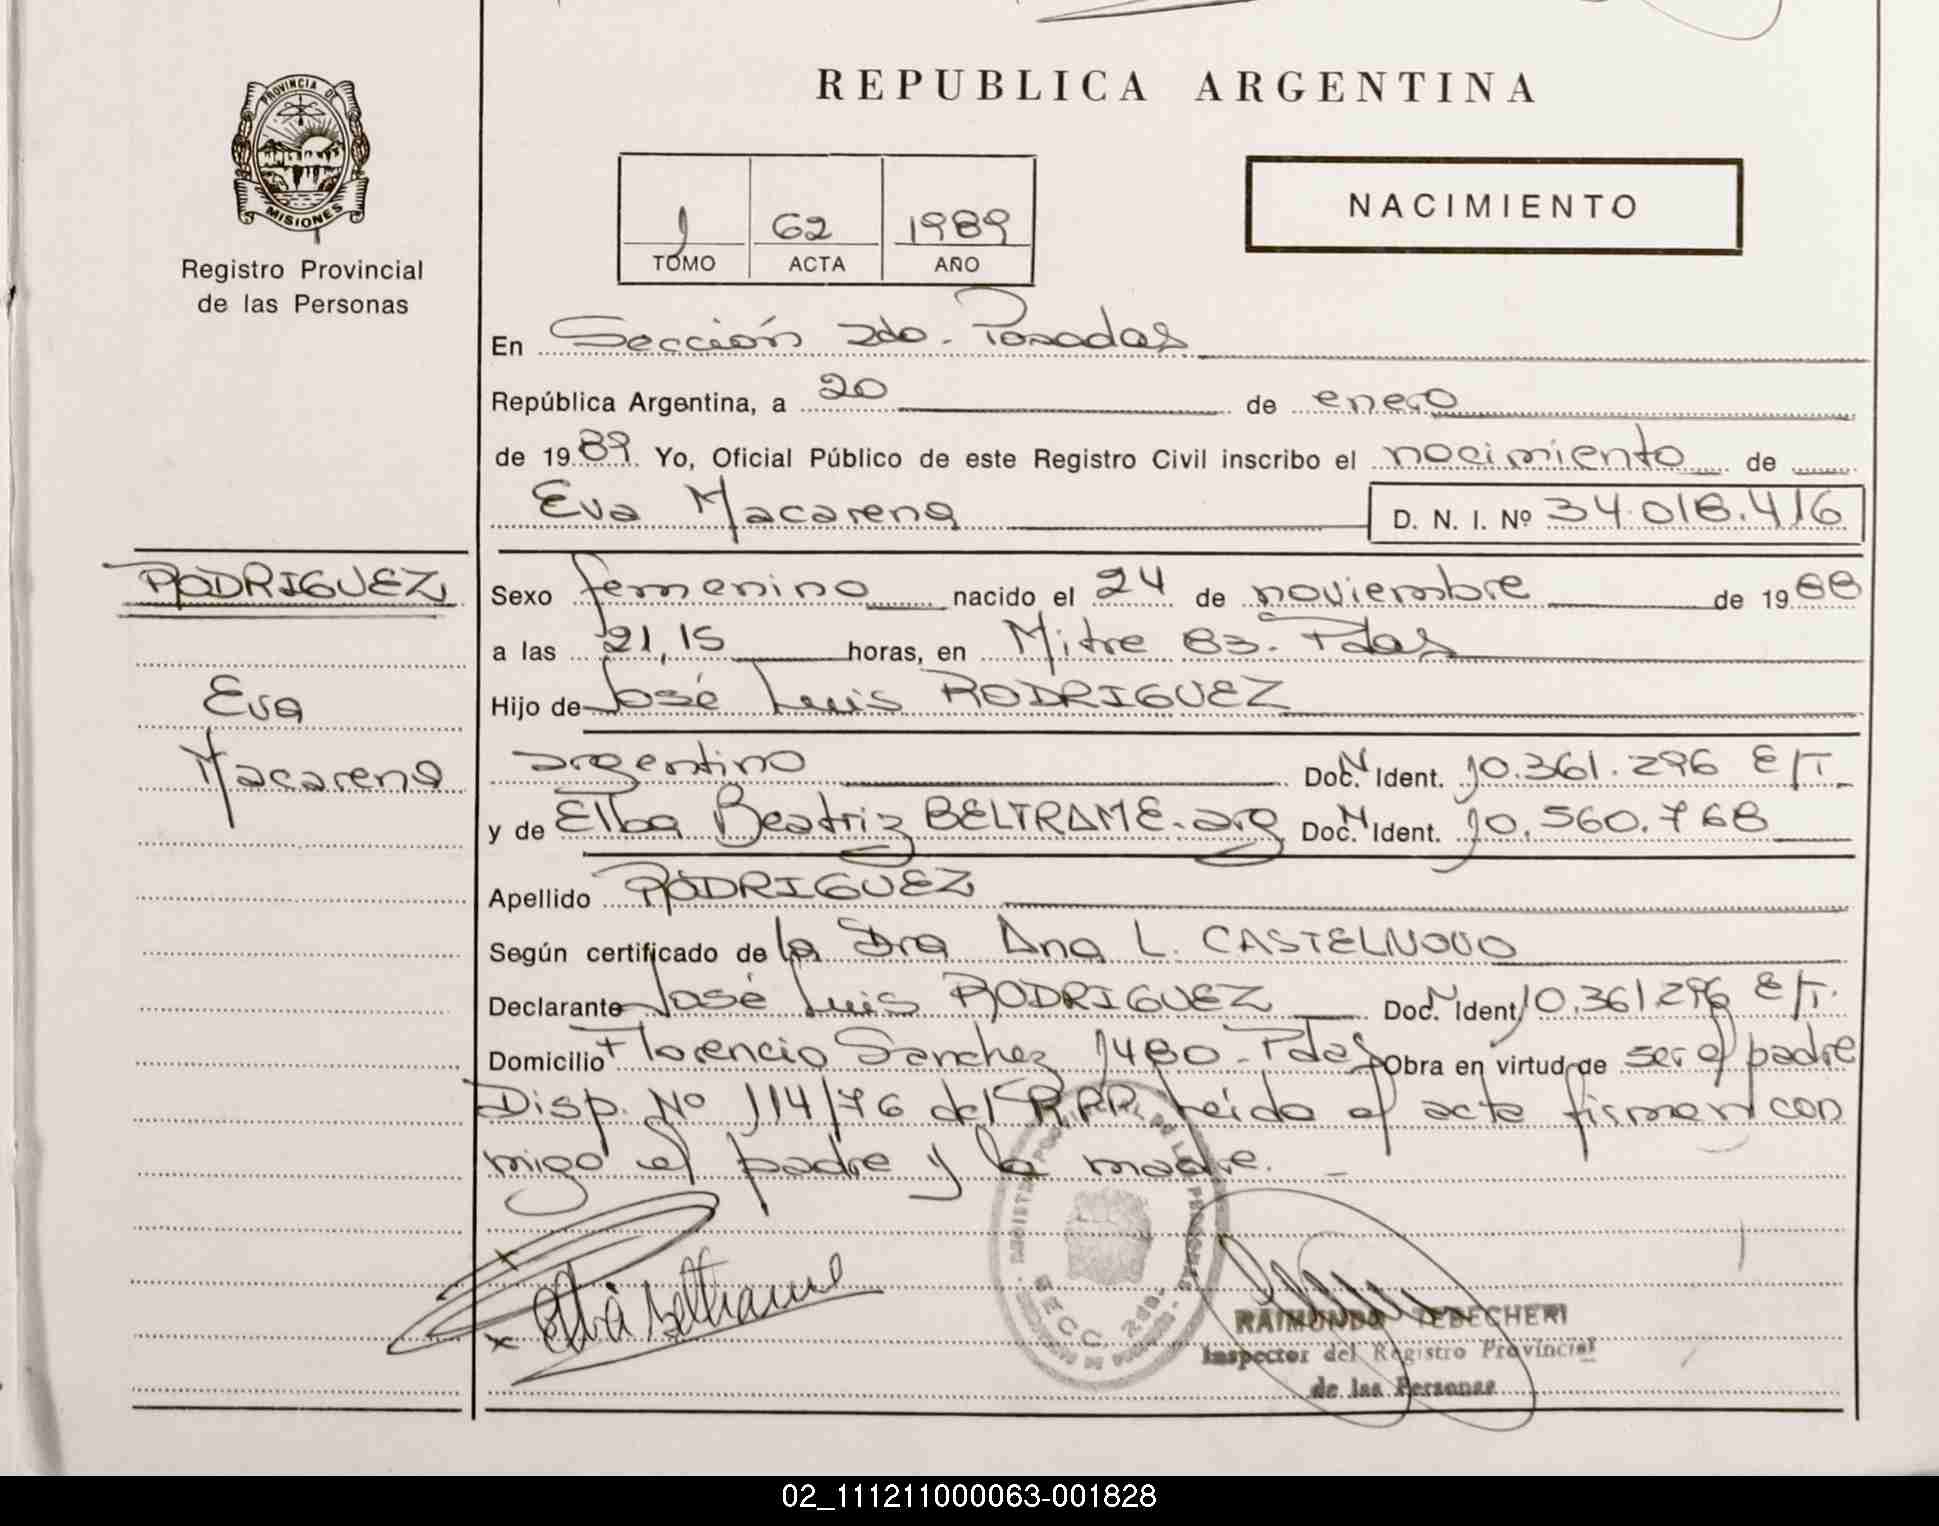 REPUBLICA ARGENTINA
PROVINCIA DE
MISIONES
Registro Provincial
de las Personas
1 62 1989
TOMO ACTA AÑO
NACIMIENTO
En Sección 2da. Posadas
República Argentina, a 20 de enero
de 1989 Yo, Oficial Público de este Registro Civil inscribo el nacimiento de
Eva Macarena D. N. I. Nº 34.018.416
RODRIGUEZ
Eva
Macarena
Sexo femenino nacido el 24 de noviembre de 1988
a las 21,15 horas, en Mitre 83. Pdas
Hijo de José Luis RODRIGUEZ
argentino Doc. N Ident. 10.361.296 E/T.
y de Elba Beatriz BELTRAME. arg Doc. N Ident. 10.560.768
Apellido RODRIGUEZ
Según certificado de la Dra Ana L. CASTELNOVO
Declarante José Luis RODRIGUEZ Doc. N Ident. 10.361.296 E/T.
Domicilio Florencio Sanchez 1480 - Pdas Obra en virtud de ser el padre
Disp. Nº 114/76 del RPP. Leida el acta firman con
migo el padre y la madre.
Elba Beltrame
SECC 2da.
RAIMUNDO TEBECHERI
Inspector del Registro Provincial
de las Personas
02_111211000063-001828